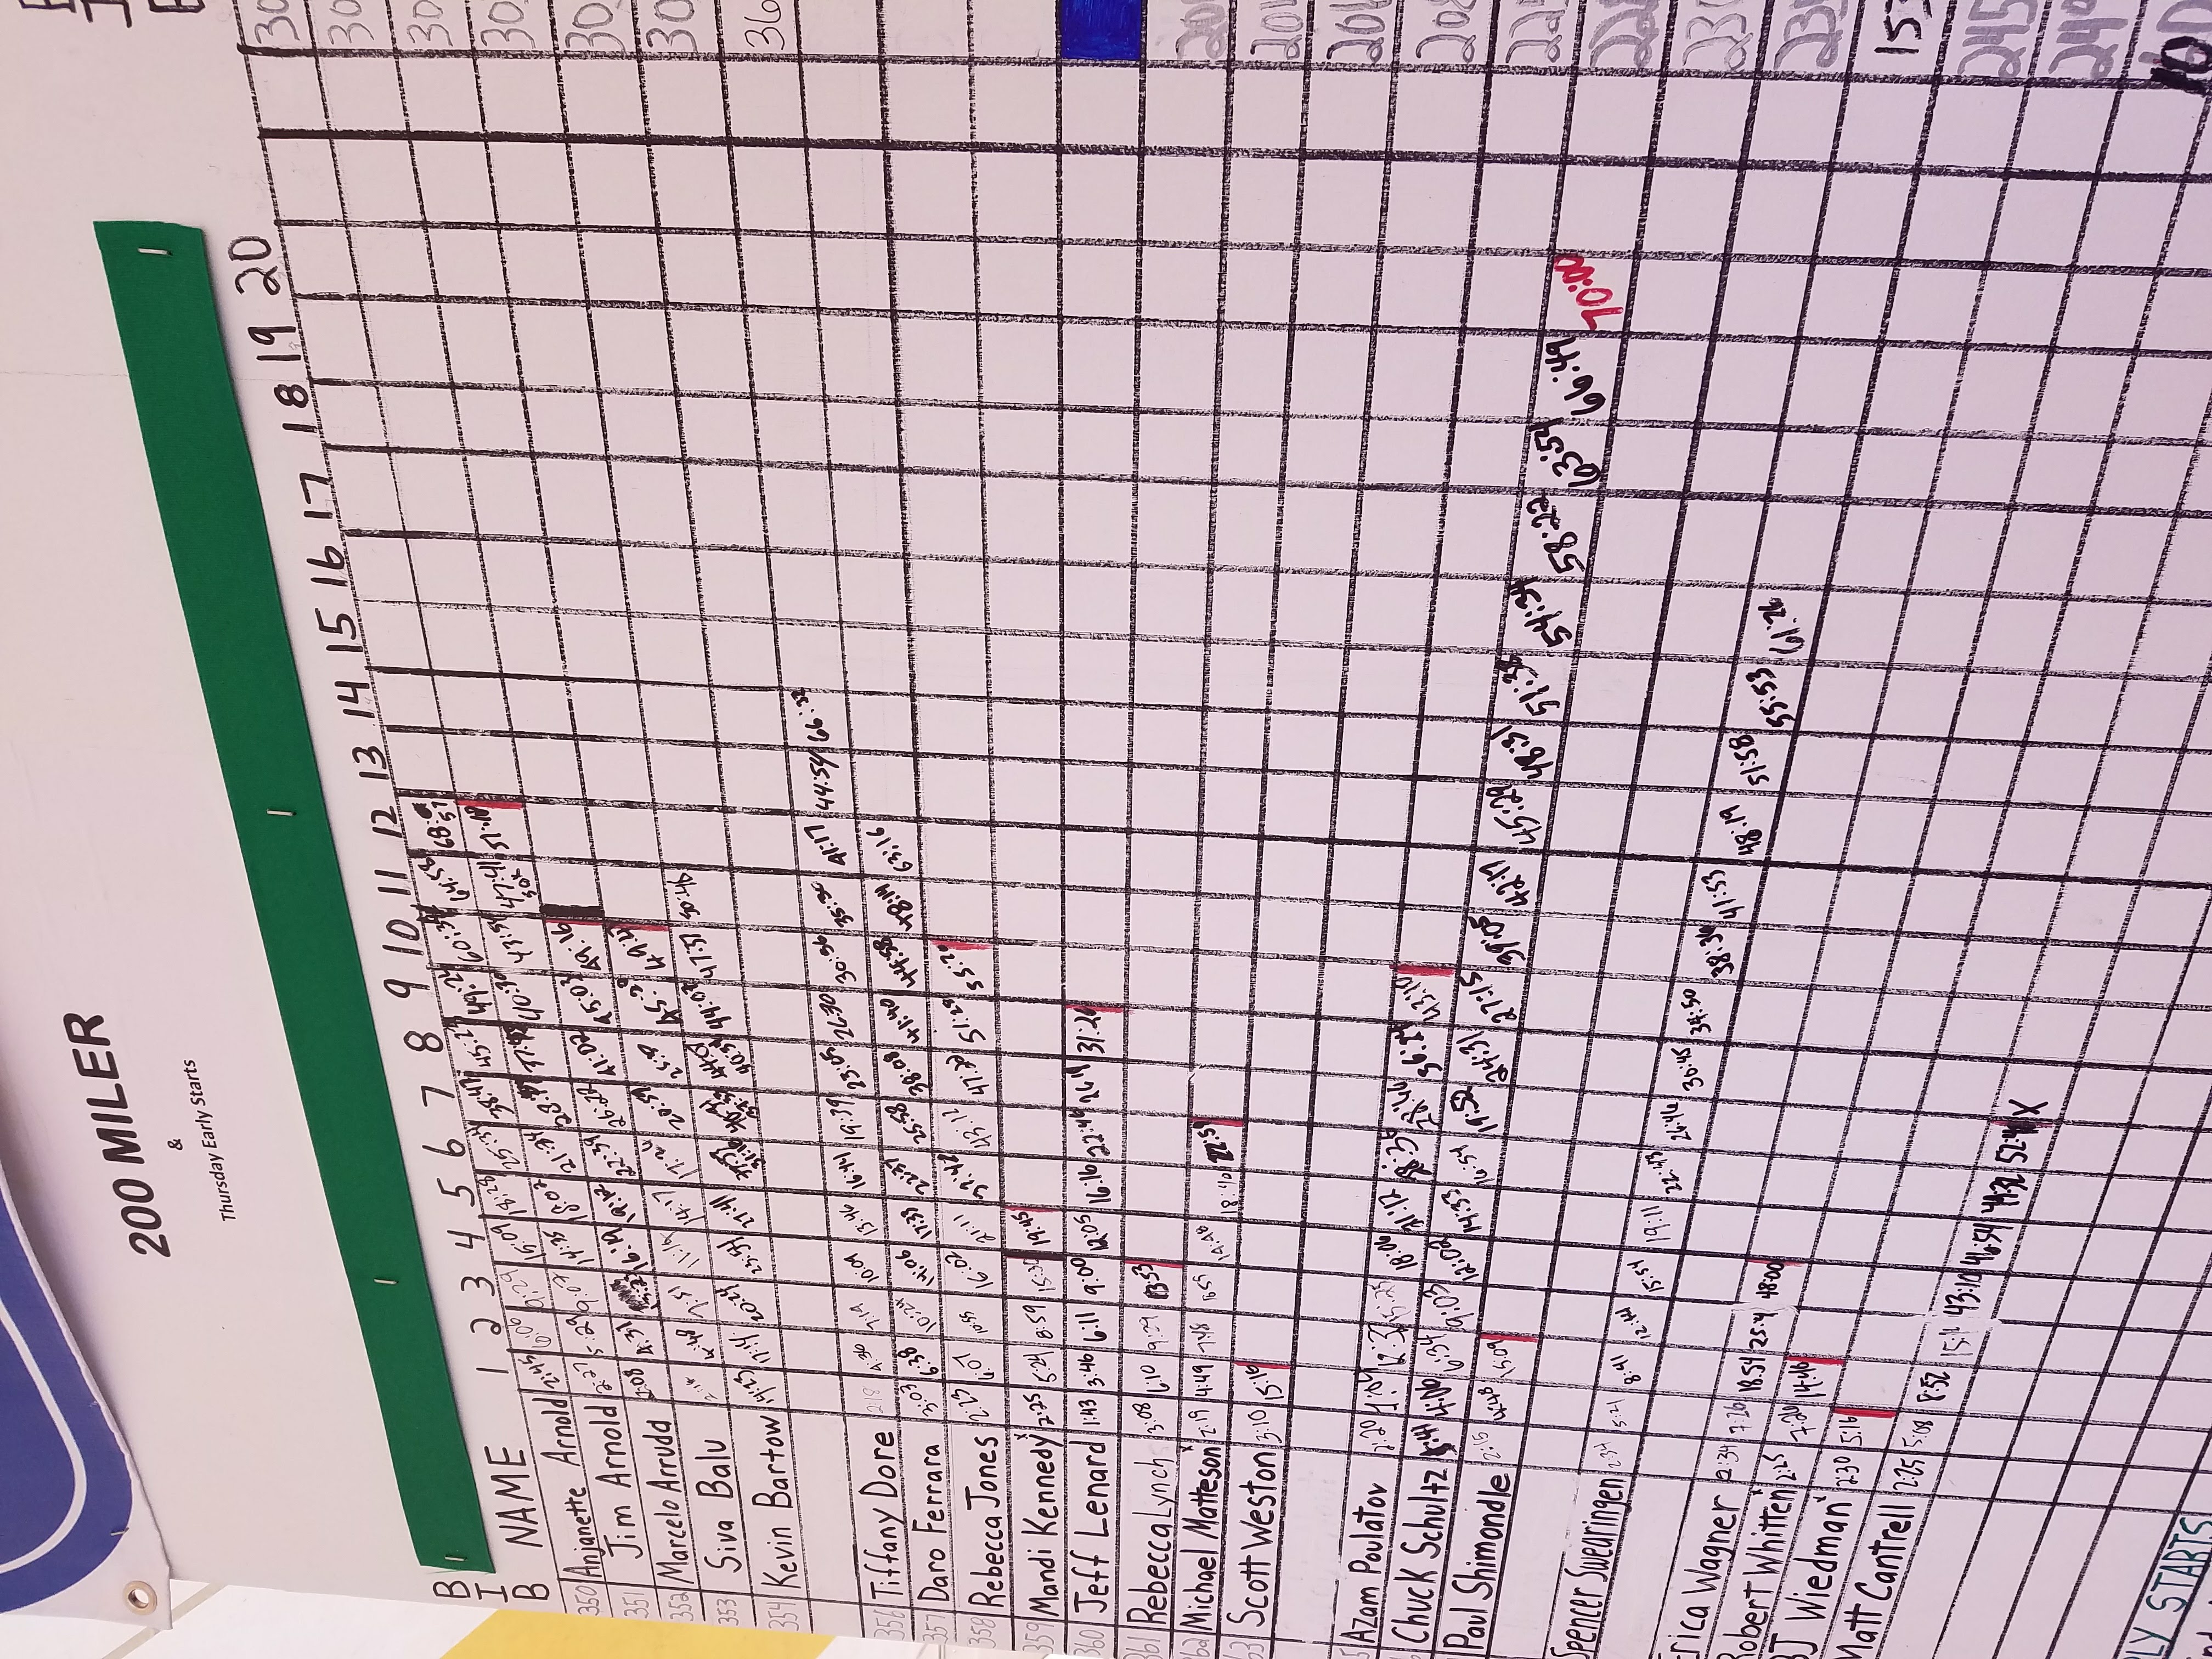 200 MILER
&
Thursday Early Starts
BIB NAME 1 2 3 4 5 6 7 8 9 10 11 12 13 14 15 16 17 18 19 20
350 Anjanette Arnold 2:45 6:06 9:29 15:09 18:28 25:34 38:47 49:24 64:58 68: 57
351 Jim Arnold 2:27 5:29 9:07 14:35 18:02 21:34 40:30 43:54 47:41 50K 51:18
352 Marcelo Arruda 2:08 4:37 13:23 16:19 19:12 22:39 26:22 41:02 45:03 49:16
353 Siva Balu 4:48 7:51 11:19 14:17 17:26 20:59 45:29
354 Kevin Bartow 14:23 17:14 20:24 23:54 27:41 44:07 47:37
356 Tiffany Dore 2:18 4:36 7:19 10:09 13:46 16:44 19:39 23:05 26:30 30:36 35:30 41:17 44:54 66:32
357 Daro Ferrara 3:03 6:38 10:24 14:06 17:33 22:37 25:58 38:08 41:40 44:58 48:14 63:16
358 Rebecca Jones 2:23 6:07 10:55 16:02 21:11 39:42 43:12 47:20 51:28 55:20
359 Mandi Kennedy x 2:25 5:24 8:59 15:30 19:45
360 Jeff Lenard 1:43 3:46 6:11 9:00 12:05 16:16 22:46 31:26
361 Rebecca Lynch 3:08 6:10 9:29 13:53
362 Michael Matteson x 2:19 4:49 7:48 14:48 18:40 22:59
63 Scott Weston 3:10 15:16
5 Azam Poulatov 2:20 15:25 18:06 21:12 28:36 36:24 43:10
Chuck Schultz 1:41 4:06 6:34 9:03 12:02 14:33 16:54 19:52 24:31 27:15 39:05 42:17 45:29 48:31 51:38 54:34 58:22 63:54 66:49 70:00
Paul Shimondle 2:15 4:48 15:09
Spencer Swearingen 2:34 5:21 8:41 12:14 15:54 19:11 22:43 26:46 30:45 34:50 38:36 41:53 48:19 51:58 55:53 61:26
Erica Wagner 2:34 7:26 18:54 25:4 48:00
Robert Whitten x 2:25 7:20 14:46
BJ Wiedman x 2:30 5:16
Matt Cantrell 2:25 5:08 8:52 43:10 46:54 49:32 X
LY STARTS
30
30
30
30
30
30
36
20
153
245
10